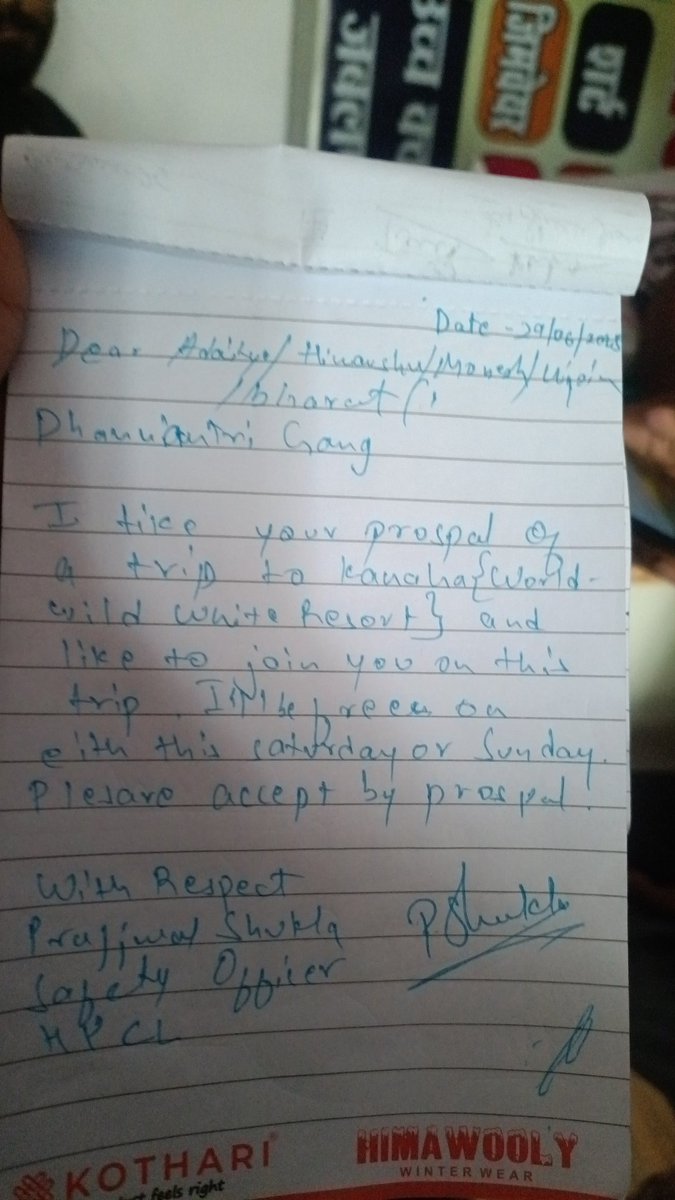 जबल
उच्च
जिमखेयर
वार्ड
Date - 29/06/2025
Dear Adaitye/ Himanshu/Monesh/Ujjain
/bharat/
Dhanwantri Gang
I like your prospal of
a trip to kanaha{World-
wild white Resort} and
like to join you on this
trip. I'll be freee on
eith this saturday or Sunday.
Plesare accept by prospal.
With Respect
Prajjwal Shukla PShukla
Safety Officer
HPCL
KOTHARI HIMAWOOLY
feels right WINTER WEAR